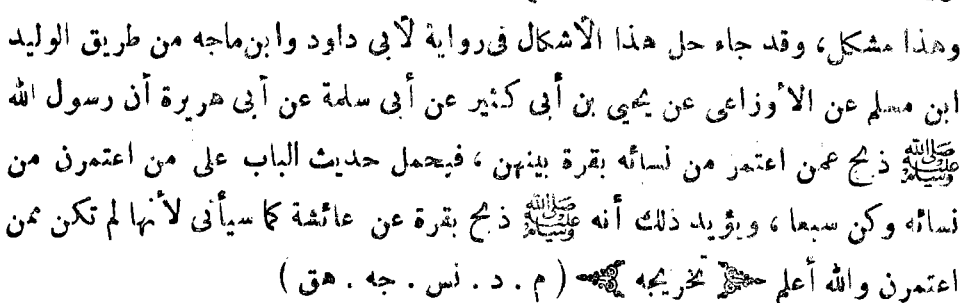 وهذا مشكل، وقد جاء حل هذا الأشكال فى رواية لأبى داود وابن ماجه من طريق الوليد
ابن مسلم عن الأوزاعى عن يحيى بن أبى كثير عن أبى سلمة عن أبى هريرة أن رسول الله
ﷺ ذبح عمن اعتمر من نسائه بقرة بينهن ، فيحمل حديث الباب على من اعتمرن من
نسائه وكن سبعا ، ويؤيد ذلك أنه ﷺ ذبح بقرة عن عائشة كما سيأتى لأنها لم تكن ممن
اعتمرن والله أعلم تخريجه ( م . د . نس . جه . هق )